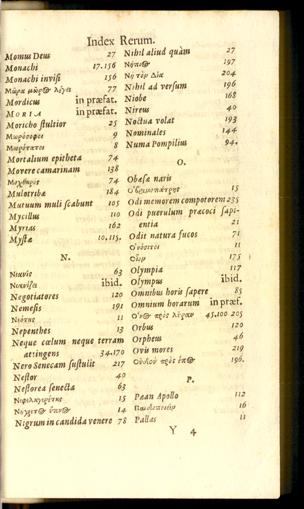 Index Rerum.
Momus Deus 27
Monachi 17.156
Monachi invisi 156
Μῶρα μωρὸς λέγει 77
Mordicus in præfat.
MORIA in præfat.
Moricho stultior 25
Μωρόσοφοι 9
Μωρότατοι 8
Mortalium epitheta 74
Movere camarinam 138
74
Mulotribæ 184
Mutuum muli scabunt 105
Mycillus 110
Myrias 162
Mystæ 10.115.
N.
63
ibid.
Negotiatores 120
Nemesis 191
11
Nepenthes 13
Neque cœlum neque terram
attingens 34.170
Nero Senecam sustulit 217
Nestor 40
Nestorea senecta 63
15
14
Nigrum in candida venere 78
Nihil aliud quàm 27
197
Νὴ τὸν Δία 204
Nihil ad versum 196
Niobe 168
Nireus 40
Noctua volat 193
Nominales 144
Numa Pompilius 94.
O.
Obæsa naris
15
Odi memorem compotorem 235
Odi puerulum præcoci sapi-
entia 21
Odit natura fucos 71
11
175
Olympia 117
Olympus ibid.
Omnibus horis sapere 85
Omnium horarum in præf.
πρὸς λύραν 45.100 205
Orbus 120
Orpheus 46
Ovis mores 219
196.
P.
Pæan Apollo 112
16
Pallas 11
Y 4